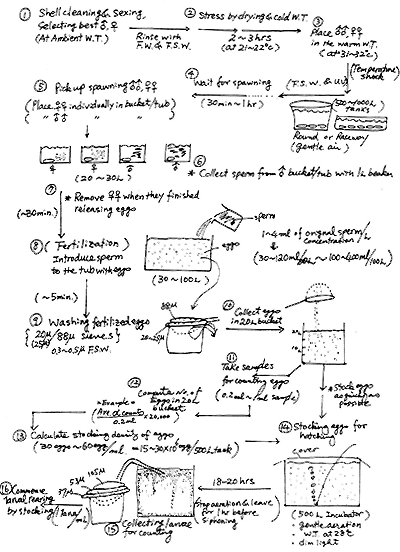 ① Shell cleaning & Sexing,
Selecting best ♂, ♀
(At Ambient W.T.)
Rinse with
F.W. & F.S.W.
② Stress by drying & cold W.T.
2~3 hrs
(at 21~22°C)
③ Place ♂, ♀
in the warm W.T.
(at 31~32°C)
(Temperature)
shock
④ Wait for spawning
(30min ~ 1hr)
(F.S.W. & UV)
(500~1000L
Tanks
Round or Raceway
(gentle air)
⑤ Pick up spawning ♂♂, ♀♀
(Place ♀♀ individually in bucket/tub)
( " ♂♂ " )
♀ ♀ ♂ ♂
(20~30L)
⑥
* Collect sperm from ♂ bucket/tub with 1L beaker
⑦
(~30min.)
* Remove ♀♀ when they finished
releasing eggs
sperm
eggs
(30~100L)
1~4 ml of original sperm/L
concentration
(30~120ml/30L ~ 100~400ml/100L)
⑧ (Fertilization)
Introduce sperm
to the tub with eggs
(~5min.)
⑨ Washing fertilized eggs
{20μ/25μ / 88μ sieves}
0.3~0.5μ F.S.W.
88μ
20~25μ
⑩ Collect eggs
in 20L bucket
20L
10
⑪
Take samples
for counting eggs
(0.2ml~/ml sample)
* Stock eggs
as quick as
possible
⑫
Compute No. of
Eggs in 20L
bucket
* Example =
(Ave. of counts / 0.2ml × 20,000)
⑬ Calculate stocking density of eggs
(30 eggs ~ 60 eggs/ml = 15~30×10⁶ eggs/500L tank)
⑭ Stocking eggs for
hatching
cover
(500L Incubator)
- gentle aeration
- W.T. at 28°C
- dim light
18~20 hrs
Stop aeration & leave
for 1hr before
siphoning
⑮ Collecting larvae
for counting
105μ
53μ
37μ
⑯ Commence
larval rearing
by stocking
(1 larva/ml)